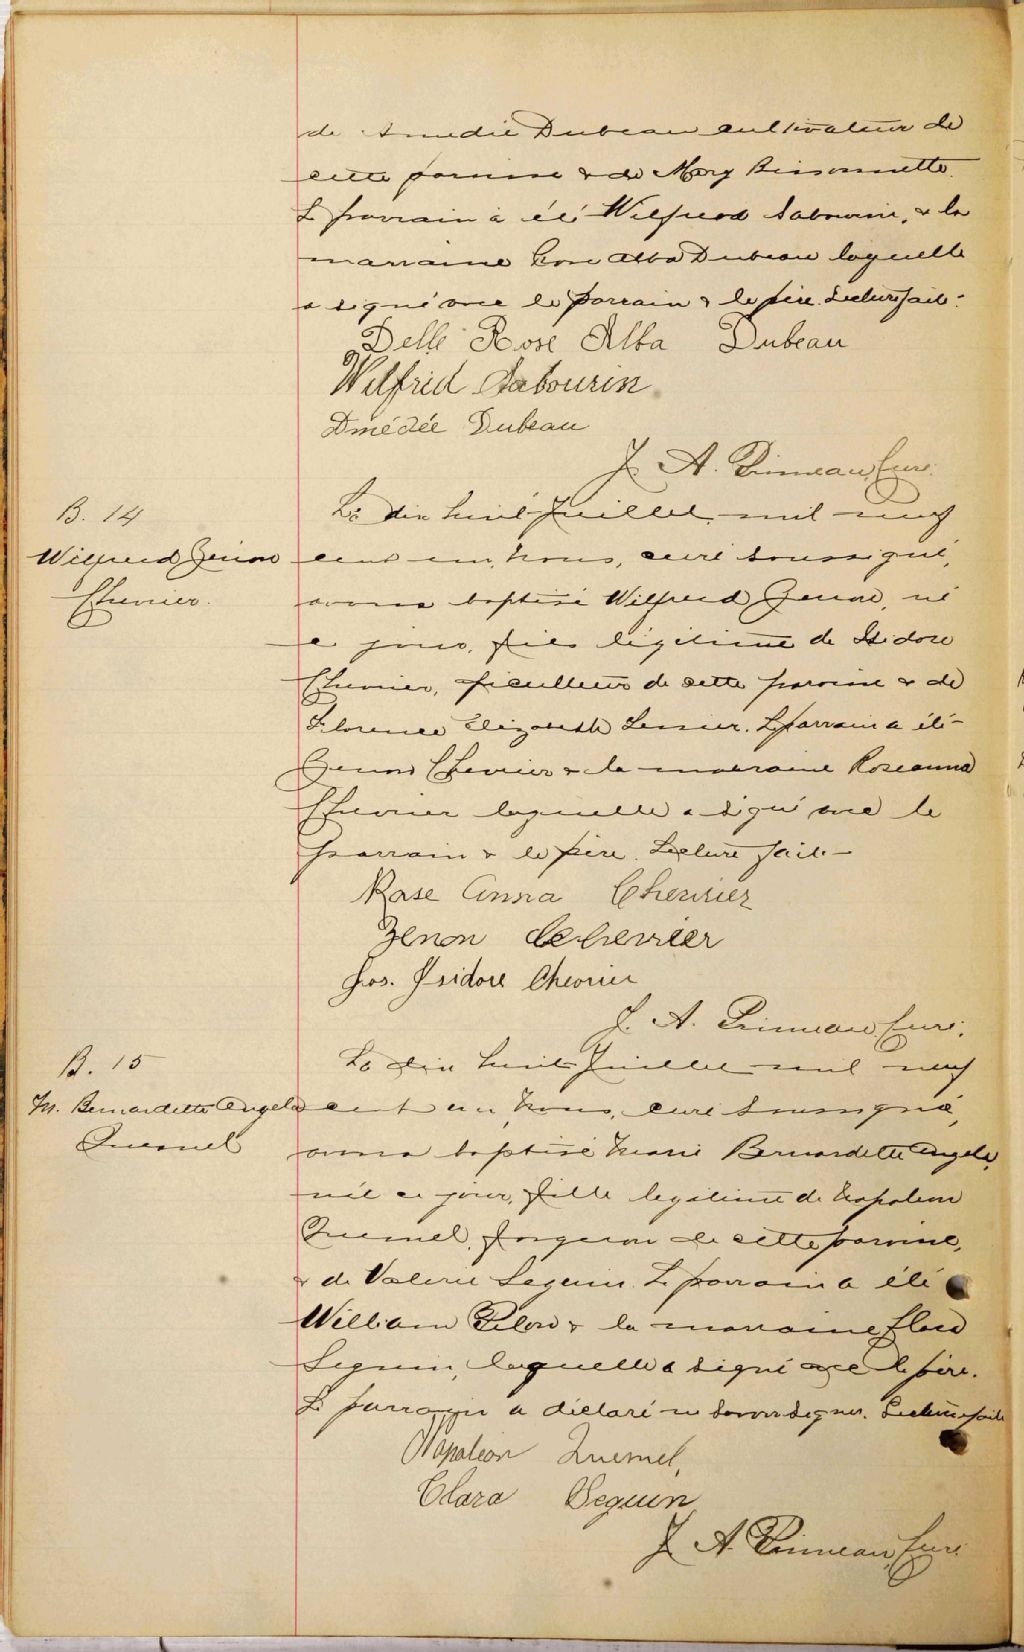 de Amedie Dubeau cultivateur de
cette paroisse & de Mary Bissonnette.
Le parrain a été Wilfred Sabourin, & la
marraine Rose Alba Dubeau laquelle
a signé avec le parrain & le père. Lecture faite.
Delle Rose Alba Dubeau
Wilfrid Sabourin
Amédée Dubeau
J. A. Primeau, Curé.
B. 14
Wilfred Zenon
Chevrier.
Le dix huit Juillet, mil neuf
cent un, nous, curé soussigné,
avons baptisé Wilfred Zenon, né
ce jour, fils légitime de Isidore
Chevrier, de cette paroisse & de
Florence Elizabeth Lessier. Le parrain a été
Zenon Chevrier & la marraine Roseanna
Chevrier laquelle a signé avec le
parrain & le père. Lecture faite
Rose Anna Chevrier
Zenon Chevrier
Jos. Isidore Chevrier
J. A. Primeau, Curé.
B. 15
M. Bernardette Angela
Quesnel
Le dix huit Juillet mil neuf
cent un, nous, curé soussigné,
avons baptisé Marie Bernardette Angela,
née ce jour, fille legitime de Napoleon
Quesnel, forgeron de cette paroisse,
& de Valerie Seguin. Le parrain a été
William Pilon & la marraine Clara
Seguin, laquelle a signé avec le père.
Le parrain a déclaré ne savoir signer. Lecture faite
Napoleon Quesnel,
Clara Seguin
J. A. Primeau, Curé